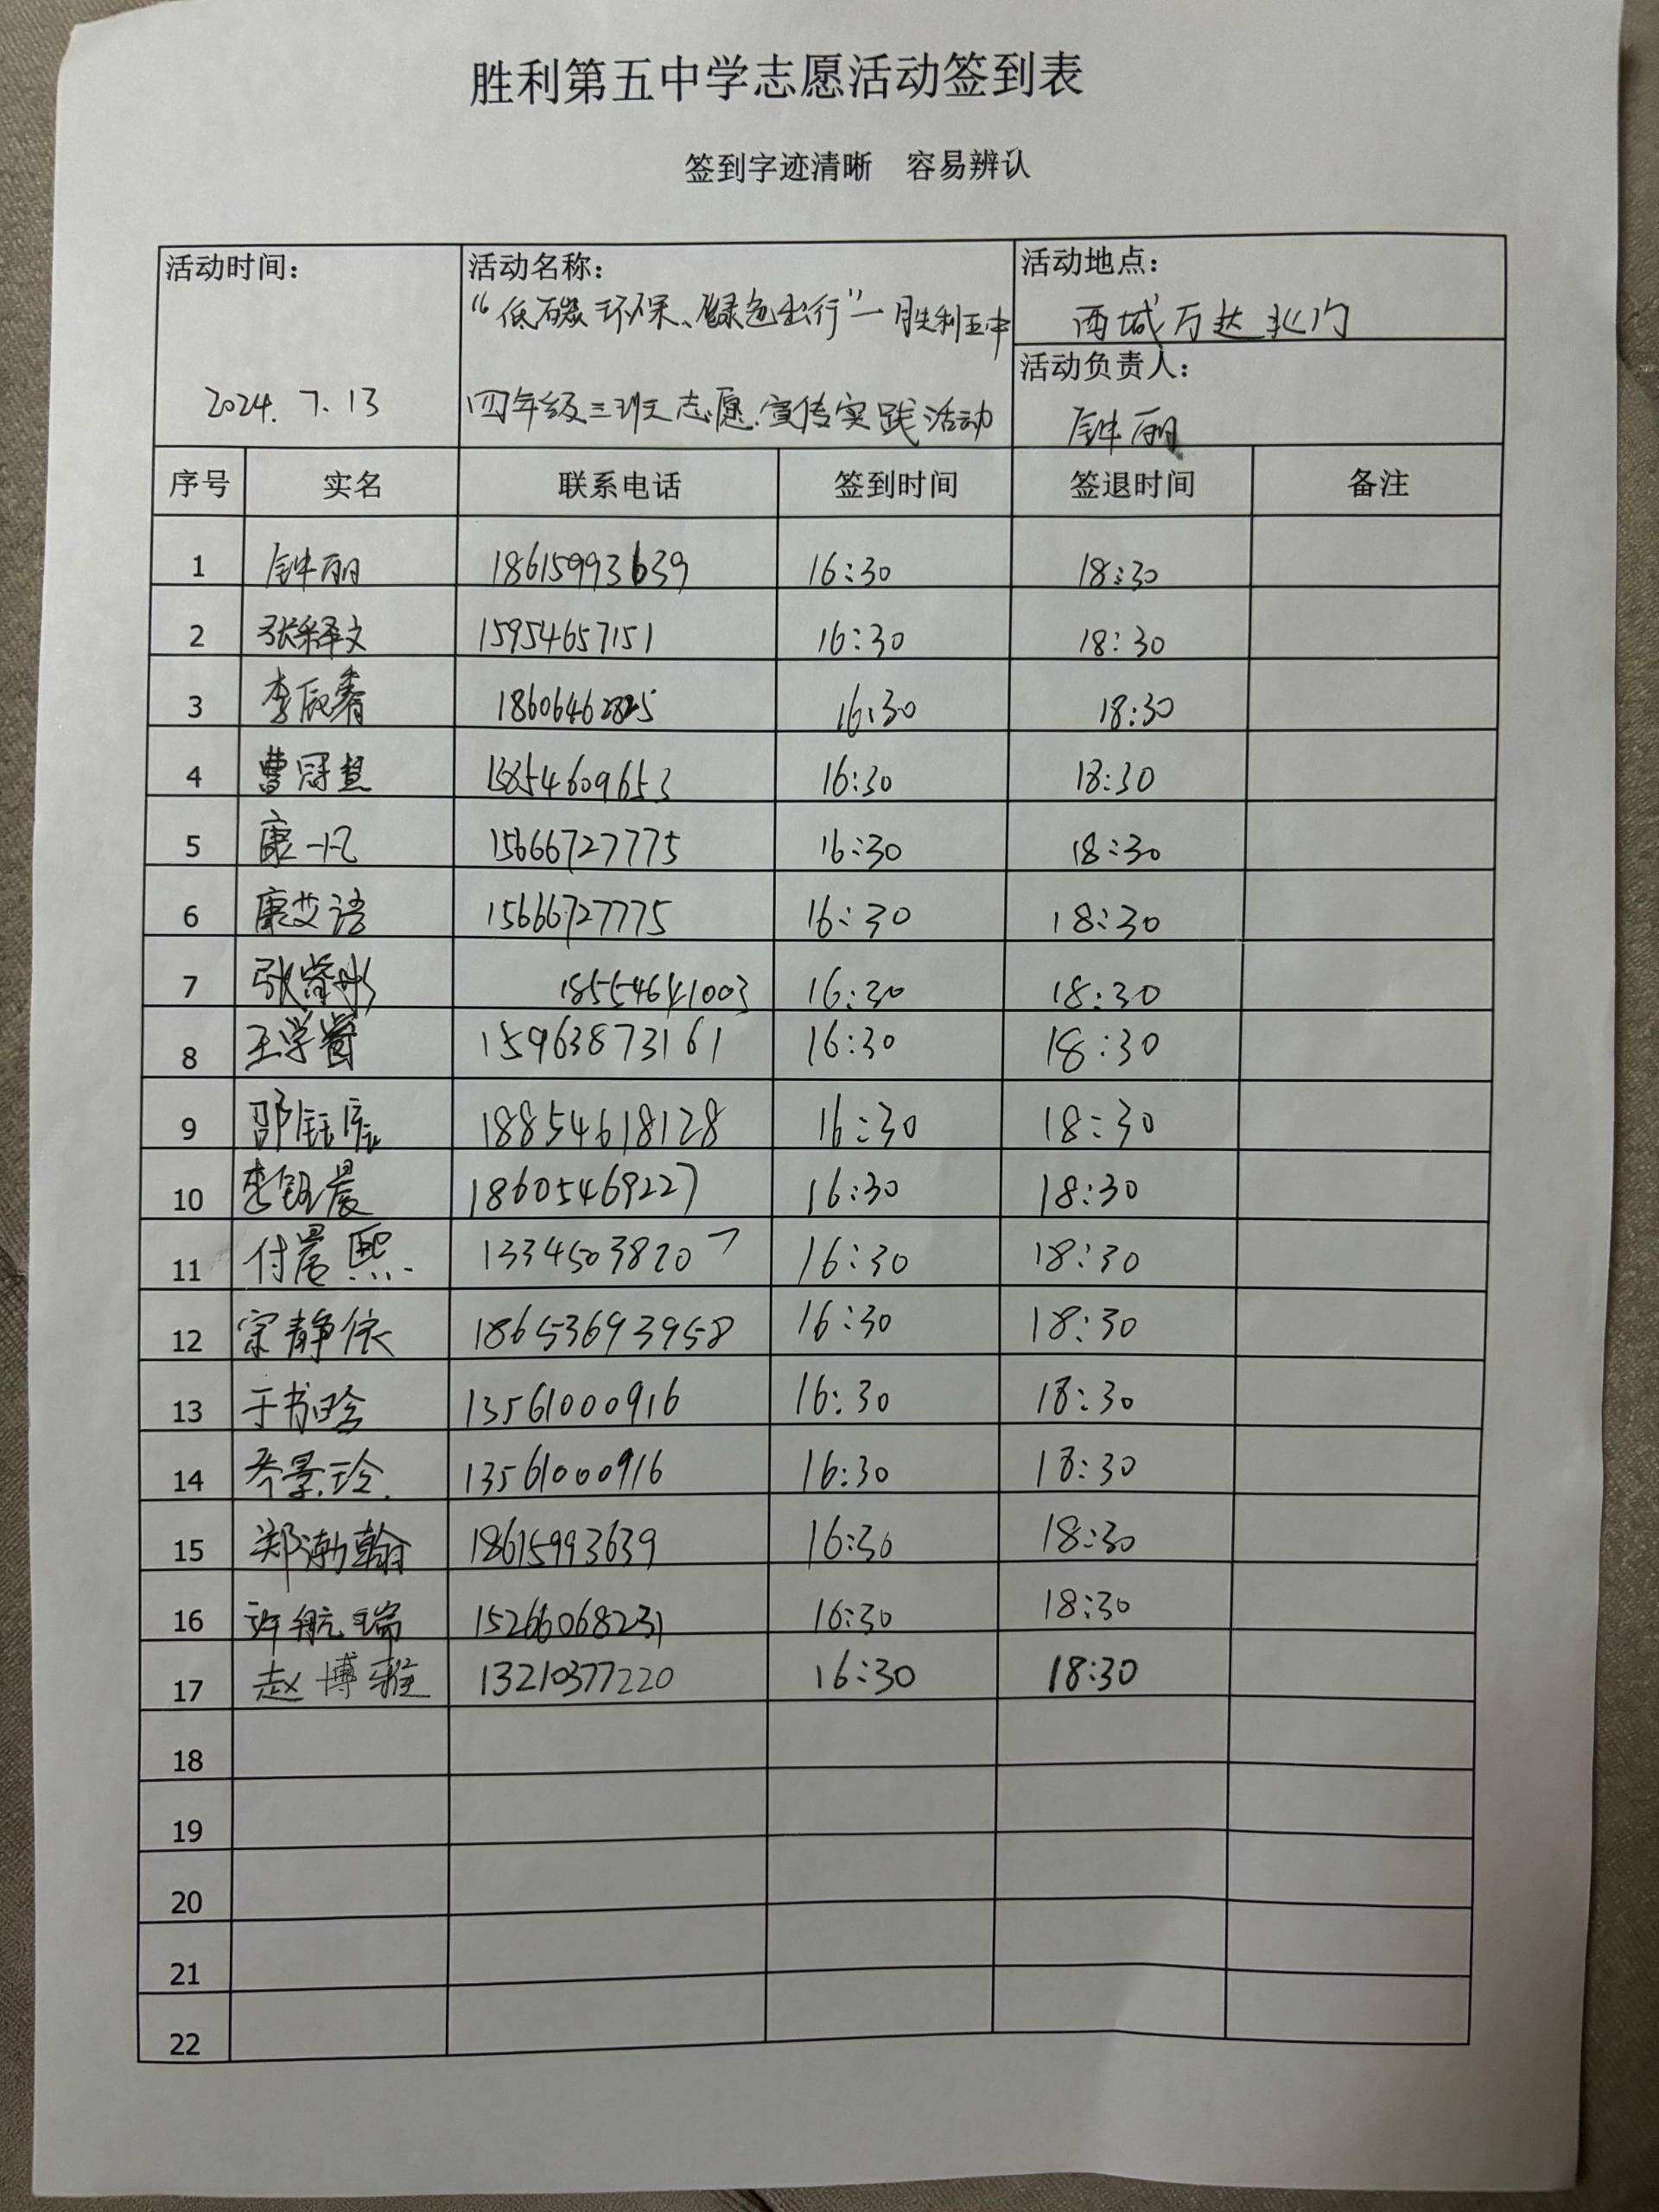 胜利第五中学志愿活动签到表
签到字迹清晰 容易辨认
活动时间： 活动名称： 活动地点：
“低碳环保、绿色出行”一胜利五中 西城万达北门
活动负责人：
2024.7.13 四年级三班志愿宣传实践活动 钟丽
序号 实名 联系电话 签到时间 签退时间 备注
1 钟丽 18615993639 16:30 18:30
2 张释文 15954657151 16:30 18:30
3 李辰睿 16:30 18:30
4 曹冠慧 13854609653 16:30 18:30
5 康一凡 15666727775 16:30 18:30
6 康艾语 15666727775 16:30 18:30
7 16:30 18:30
8 王学睿 15963873161 16:30 18:30
9 18854618128 16:30 18:30
10 李钰晨 18605469227 16:30 18:30
11 付晨熙 13345038207 16:30 18:30
12 宋静依 18653693958 16:30 18:30
13 于书晗 13561000916 16:30 18:30
14 13561000916 16:30 18:30
15 郑渤翰 18615993639 16:30 18:30
16 许航瑞 15266068231 16:30 18:30
17 赵博雅 13210377220 16:30 18:30
18
19
20
21
22